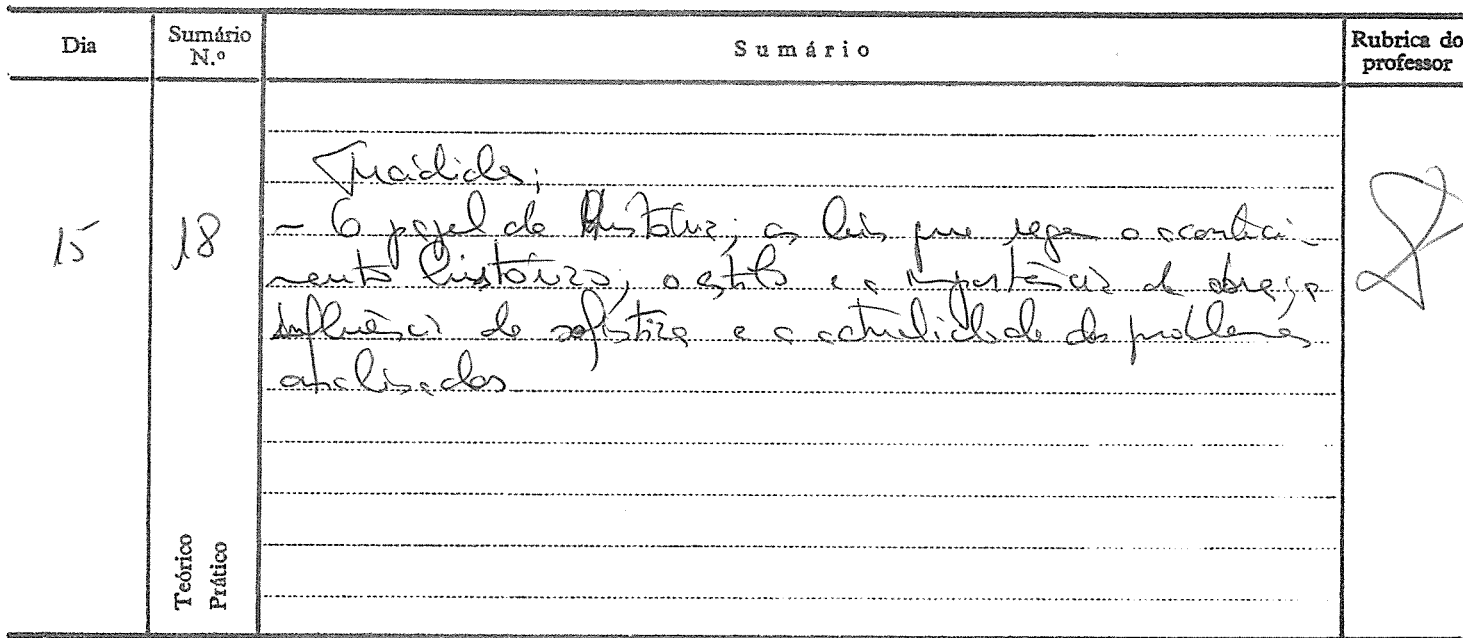 Dia
Sumário N.º
Sumário
Rubrica do professor
15
18
Tucídides;
- O papel da História; as leis que regem o aconteci-
mento histórico; o estilo e a importância da obra; a
influência da sofística e a actualidade dos problemas
analisados
Teórico
Prático